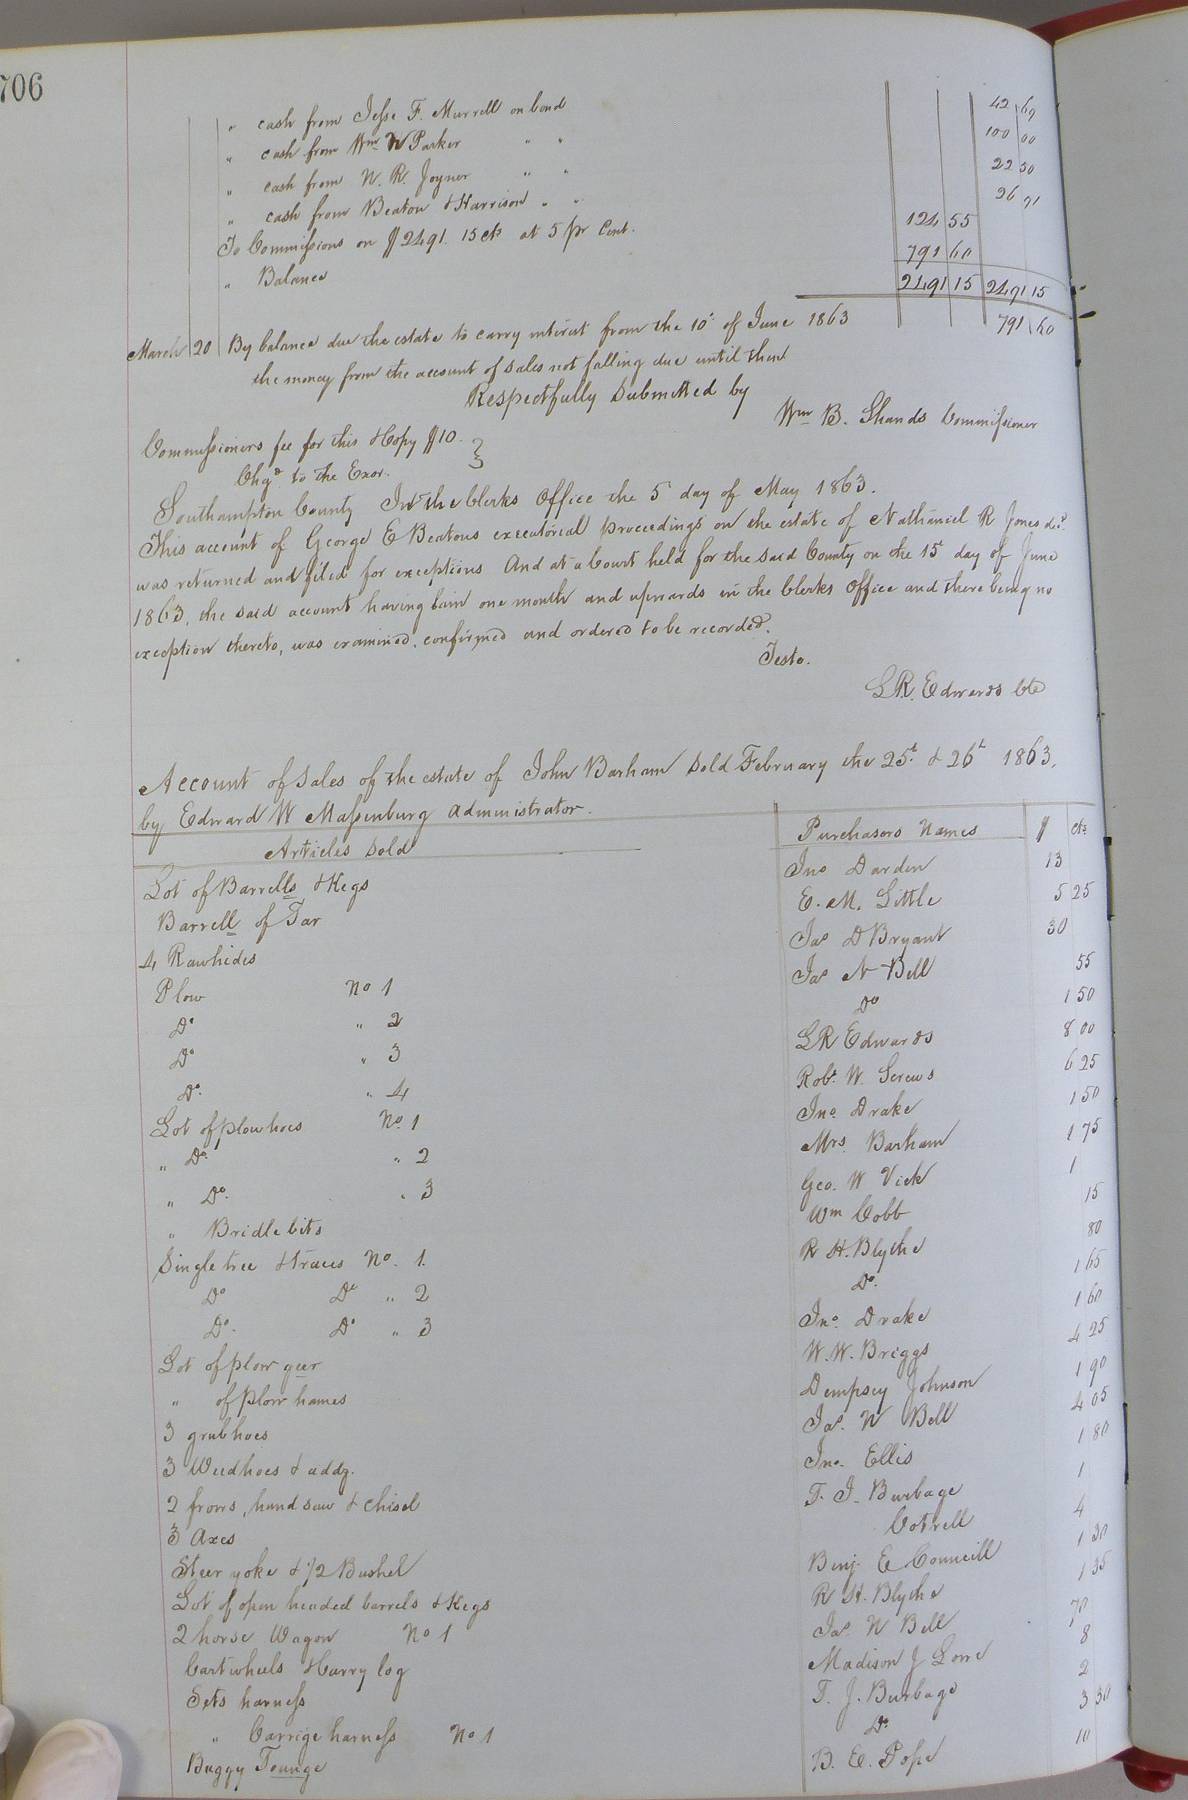 706
" cash from Jesse F. Murrell on bond 42 69
" cash from Wm W Parker " " 100 00
" cash from N. R. Joyner " " 22 50
" cash from Beaton & Harrison " " 26 91
To Commissions on $2491. 15 cts at 5 pr Cent. 124 55
" Balance 791 60
2491 15 2491 15
March 20 By balance due the estate to carry interest from the 10th of June 1863 791 60
the money from the account of sales not falling due until then
Respectfully submitted by
Wm B. Shands Commissioner
Commissioners fee for this & Copy $10. }
Chgd to the Exor.
Southampton County In the Clerks Office the 5 day of May 1863.
This account of George E Beatons executorial proceedings on the estate of Nathaniel R Jones decd
was returned and filed for exceptions And at a Court held for the said County on the 15th day of June
1863, the said account having lain one month and upwards in the Clerks Office and there being no
exception thereto, was examined, confirmed and ordered to be recorded.
Teste.
L.R. Edwards Clk
Account of Sales of the estate of John Barham Sold February the 25th & 26th 1863.
by Edward W Massenburg administrator.
Articles Sold Purchasers Names $ cts
Lot of Barrells & Kegs Jno Darden 13
Barrell of Tar E. M. Little 5 25
4 Rawhides Jas D Bryant 30
Plow No 1 Jas N Bell 55
Do " 2 Do 1 50
Do " 3 L R Edwards 8 00
Do. " 4 Robt. W. Screws 6 25
Lot of plow hoes No. 1 Jno. Drake 1 50
" Do. " 2 Mrs. Barham 1 75
" Do. " 3 Geo. W Vick 1
" Bridle bits Wm Cobb 15
Singletree & traces No. 1. R H. Blythe 80
Do Do " 2 Do. 1 65
Do. Do " 3 Jno. Drake 1 60
Lot of plow geer W. W. Briggs 4 25
" of plow hames Dempsey Johnson 1 90
3 grubhoes Jas. N Bell 4 05
3 Weedhoes & addz. Jno. Ellis 1 80
2 frows, hand saw & chisel T. J. Burbage 1
3 Axes Cotrell 4
Steer yoke & 1/2 Bushel Benj. E Councill 1 30
Lot of open headed barrels & Kegs R H. Blythe 1 35
2 horse Wagon No 1 Jas. N Bell 70
Cartwheels & Carry log Madison J 8
Sets harness T. J. Burbage 2
" Carrige harness No 1 Do 3 30
Buggy Tounge B. E. Pope 10